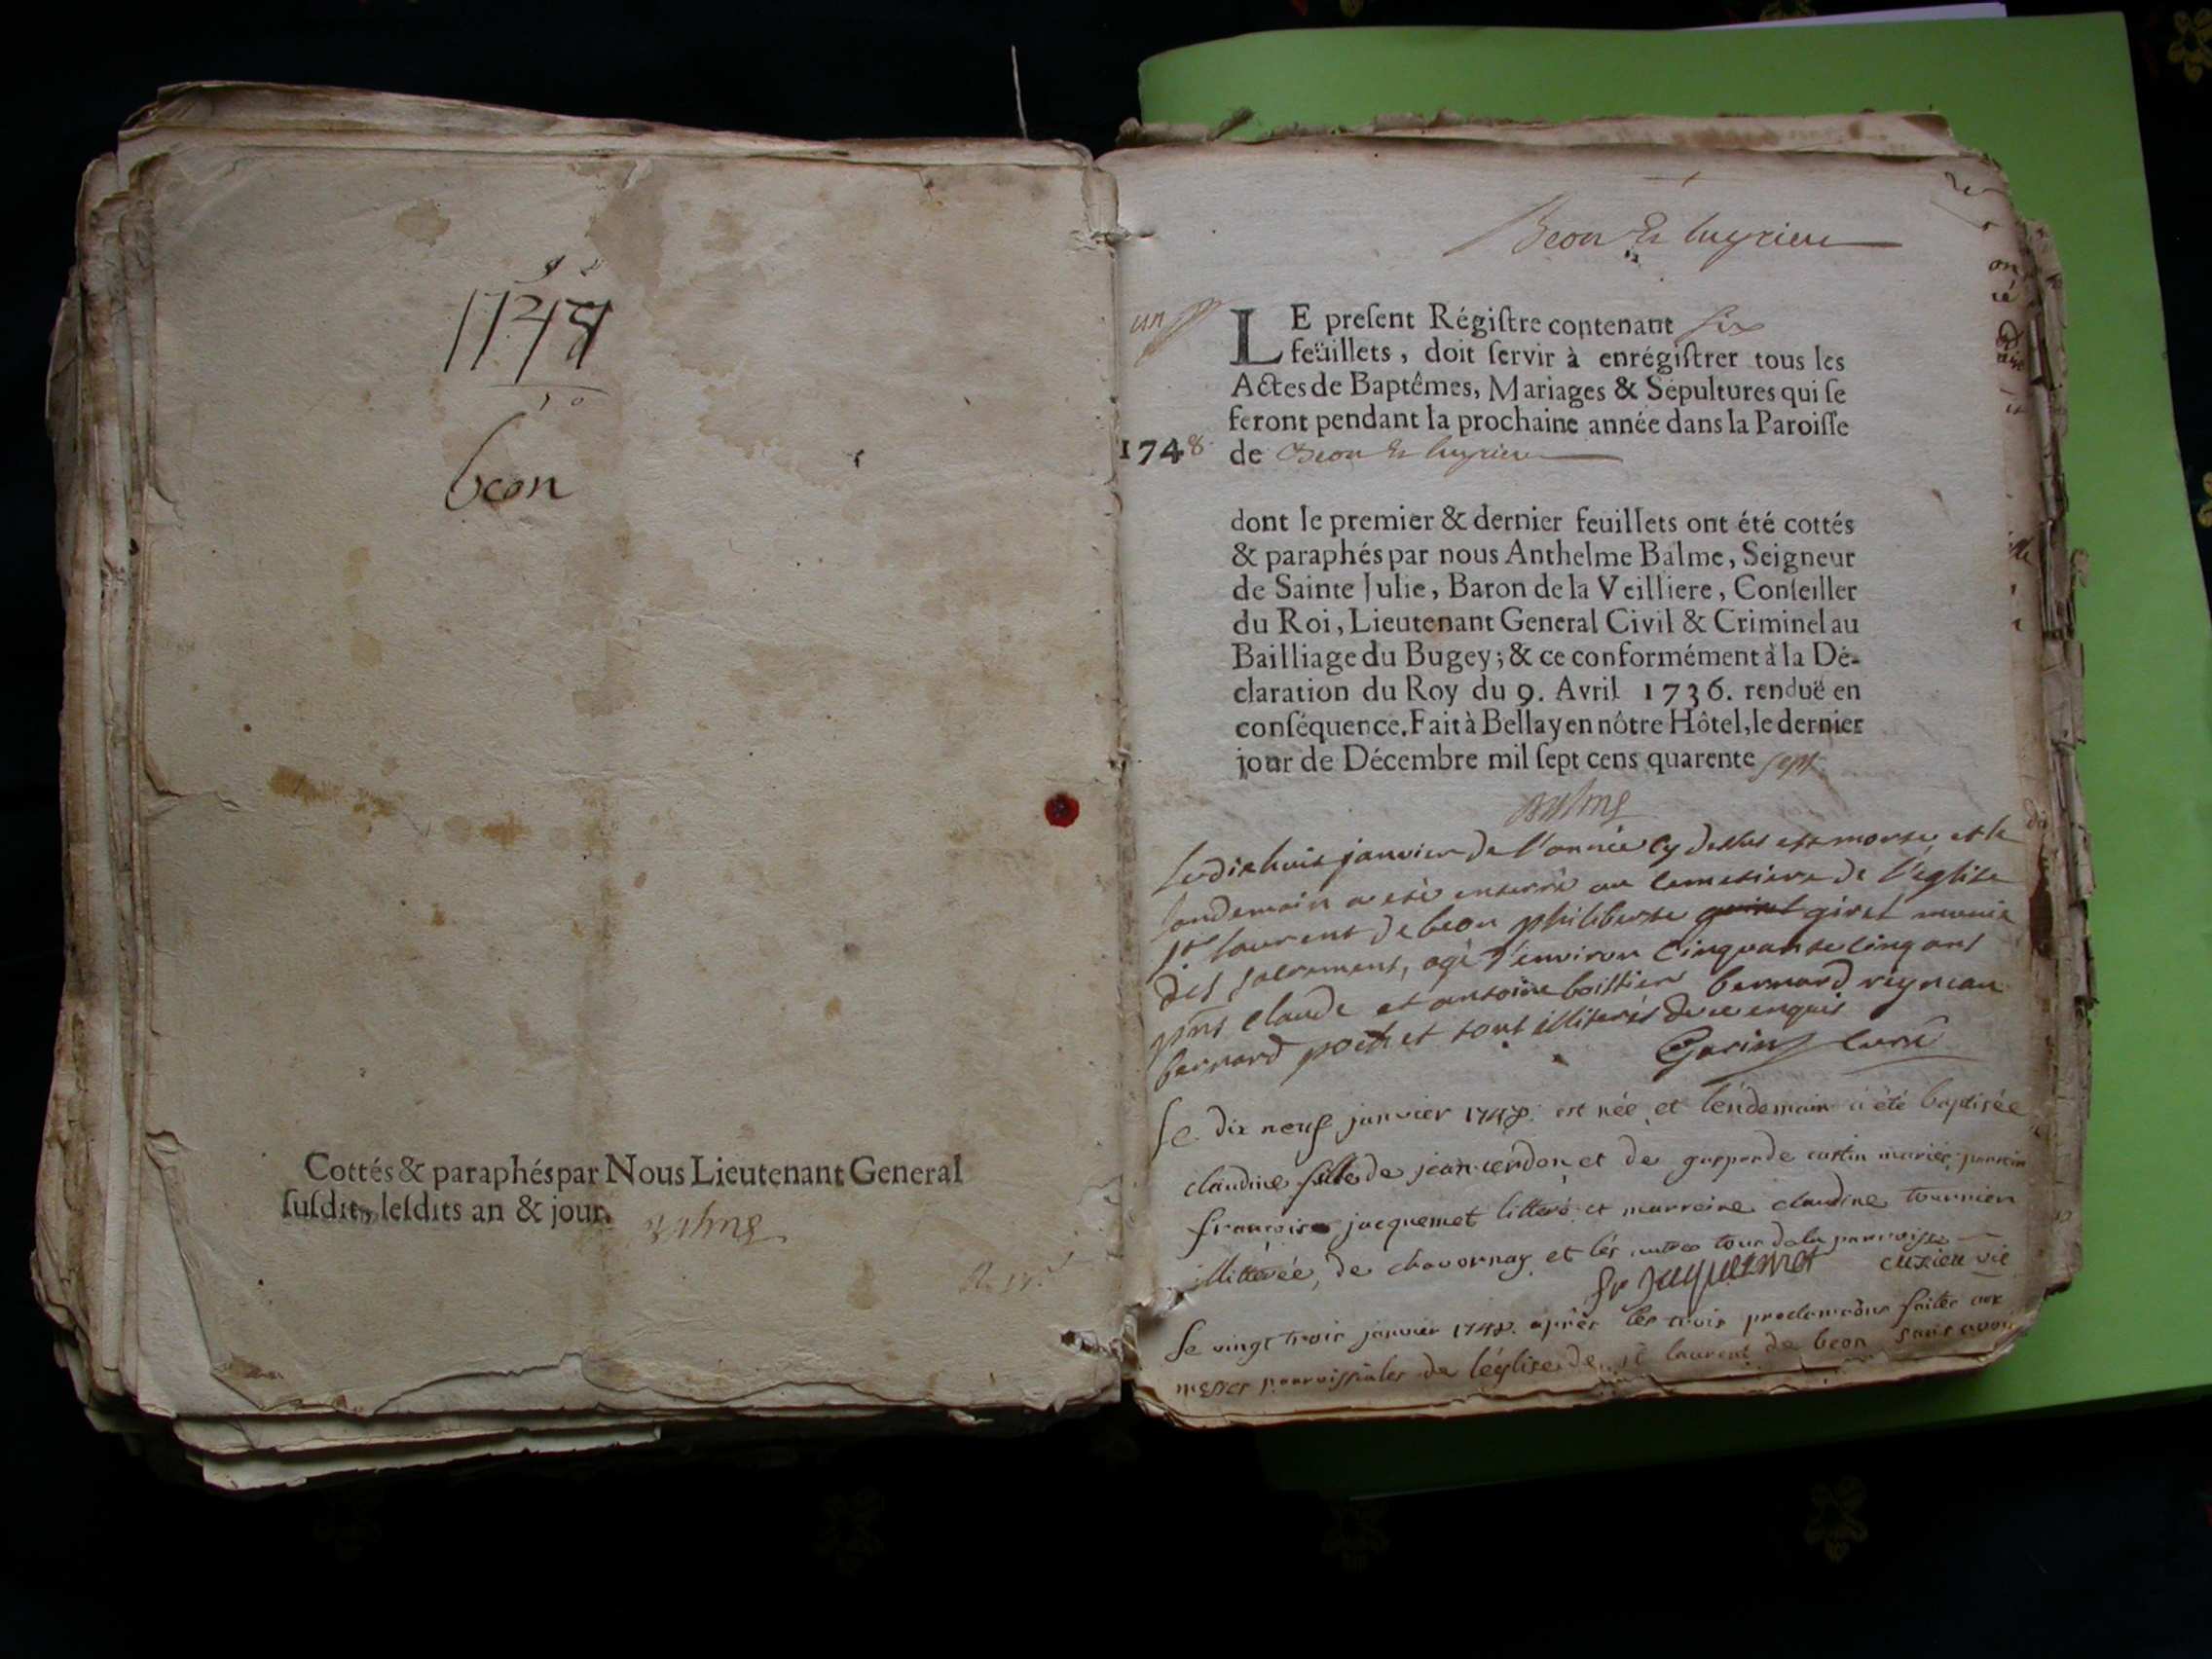 1748
beon
Cottés & paraphés par Nous Lieutenant General
susdit, lesdits an & jour. Balme
Beon & luyrieu
un
LE present Régistre contenant six
feüillets, doit servir à enrégistrer tous les
Actes de Baptêmes, Mariages & Sépultures qui se
feront pendant la prochaine année dans la Paroisse
1748 de Beon & luyrieu
dont le premier & dernier feuillets ont été cottés
& paraphés par nous Anthelme Balme, Seigneur
de Sainte Julie, Baron de la Veilliere, Conseiller
du Roi, Lieutenant General Civil & Criminel au
Bailliage du Bugey; & ce conformément à la Dé-
claration du Roy du 9. Avril 1736. renduë en
conséquence. Fait à Bellay en nôtre Hôtel, le dernier
jour de Décembre mil sept cens quarente sept
Balme
Le dix huit janvier de l'année cy dessus est morte, et le
landemain a eté enterré au cemetiere de l'église
st laurent de beon philiberte giret munie
des sacrement, agé d'environ cinquante cinq ans
pnts claude et antoine boissier bernard reyneau
bernard pochet tous illiterés de ce enquis
Garin curé
Le dix neuf janvier 1748. est née et lendemain a été baptisée
claudine fille de jean cerdon et de gasparde cartin mariés parrein
françois jacquemet litteré et marreine claudine tournier
illitterée, de chavornay et les autres tous de la parroisse
fr jacquemet cuzieu vic
Le vingt trois janvier 1748. après les trois proclamaôns faites aux
messes parroissiales de l'église de st laurent de beon sans avoir